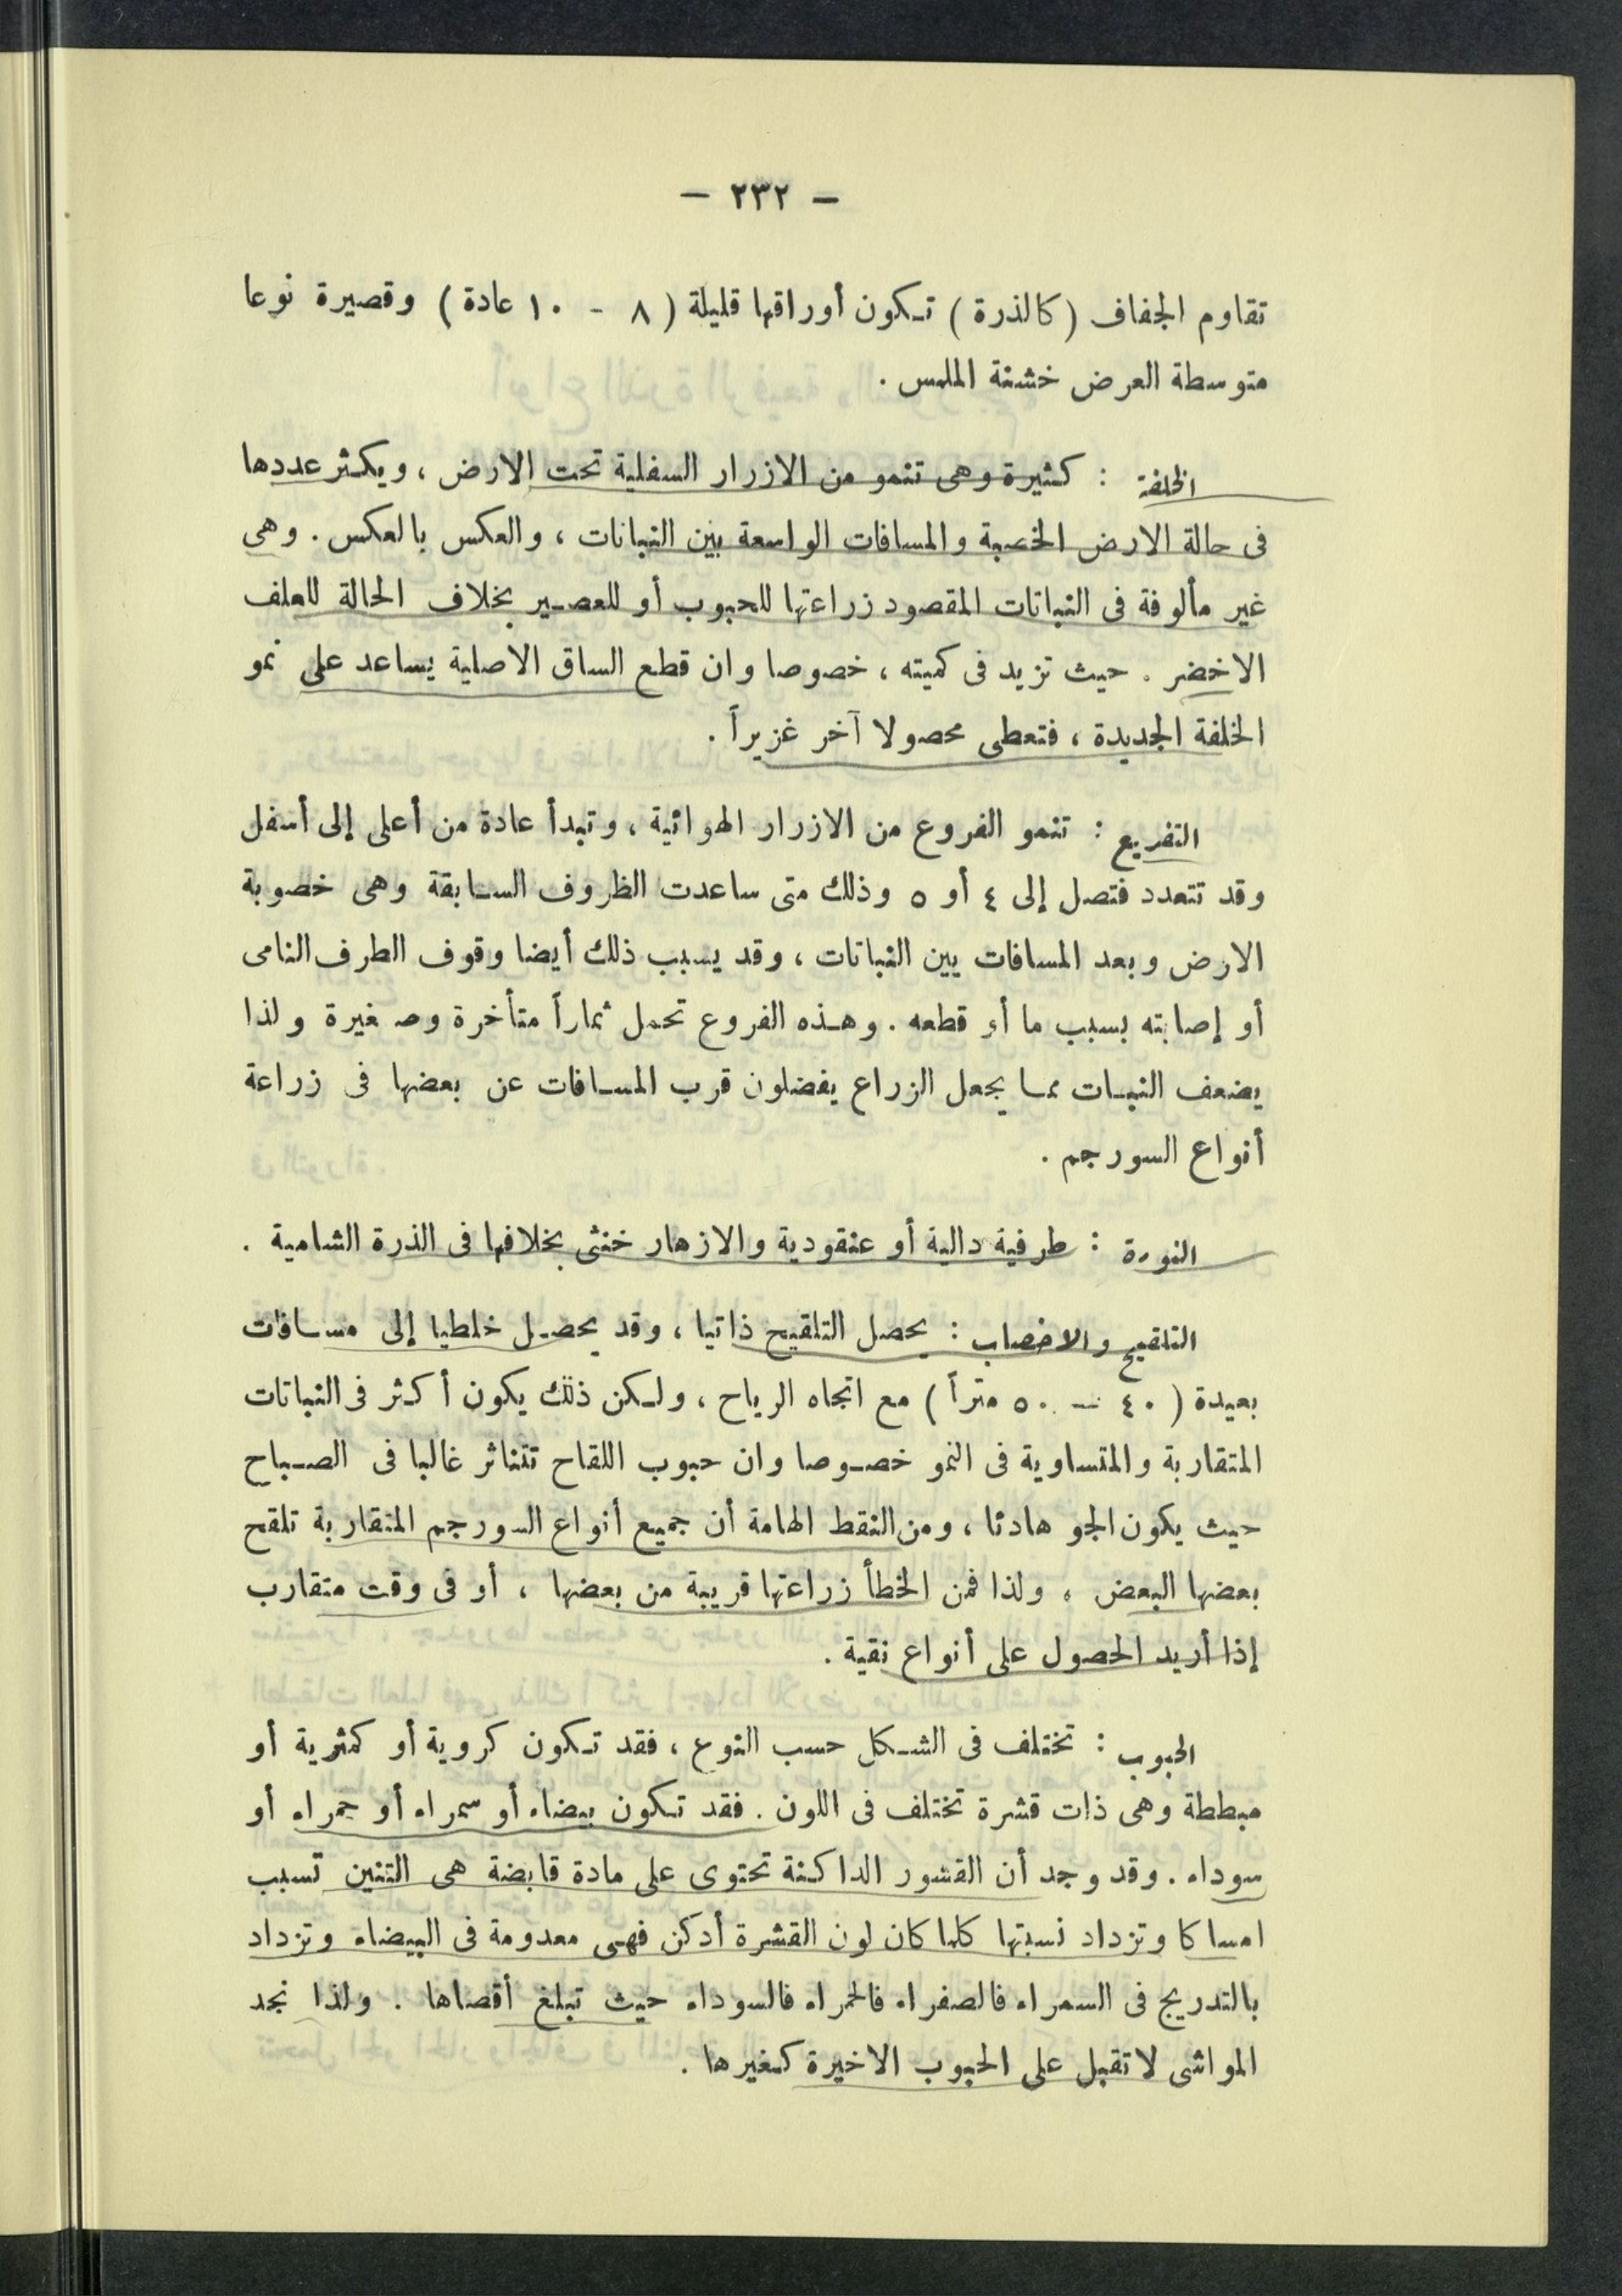 — ٢٣٢ —
تقاوم الجفاف (كالذرة) تكون أوراقها قليلة (٨ - ١٠ عادة) وقصيرة نوعا
متوسطة العرض خشنة الملمس .
الخلفة : كثيرة وهى تنمو من الازرار السفلية تحت الارض ، ويكثر عددها
فى حالة الارض الخصبة والمسافات الواسعة بين النباتات ، والعكس بالعكس . وهى
غير مألوفة فى النباتات المقصود زراعتها للحبوب أو للعصير بخلاف الحالة للعلف
الاخضر . حيث تزيد فى كميته ، خصوصا وان قطع الساق الاصلية يساعد على نمو
الخلفة الجديدة ، فتعطى محصولا آخر غزيراً .
التفريع : تنمو الفروع من الازرار الهوائية ، وتبدأ عادة من أعلى إلى أسفل
وقد تتعدد فتصل إلى ٤ أو ٥ وذلك متى ساعدت الظروف السابقة وهى خصوبة
الارض وبعد المسافات بين النباتات ، وقد يسبب ذلك أيضا وقوف الطرف النامى
أو إصابته بسبب ما أو قطعه . وهذه الفروع تحمل ثماراً متأخرة وصغيرة ولذا
يضعف النبات مما يجعل الزراع يفضلون قرب المسافات عن بعضها فى زراعة
أنواع السورجم .
النورة : طرفية دالية أو عنقودية والازهار خنثى بخلافها فى الذرة الشامية .
التلقيح والاخصاب : يحصل التلقيح ذاتيا ، وقد يحصل خلطيا إلى مسافات
بعيدة (٤٠ — ٥٠ متراً) مع اتجاه الرياح ، ولكن ذلك يكون أكثر فى النباتات
المتقاربة والمتساوية فى النمو خصوصا وان حبوب اللقاح تتناثر غالبا فى الصباح
حيث يكون الجو هادئا ، ومن النقط الهامة أن جميع أنواع السورجم المتقاربة تلقح
بعضها البعض ، ولذا فمن الخطأ زراعتها قريبة من بعضها ، أو فى وقت متقارب
إذا أريد الحصول على أنواع نقية .
الحبوب : تختلف فى الشكل حسب النوع ، فقد تكون كروية أو كمثرية أو
مبططة وهى ذات قشرة تختلف فى اللون . فقد تكون بيضاء أو سمراء أو حمراء أو
سوداء . وقد وجد أن القشور الداكنة تحتوى على مادة قابضة هى التنين تسبب
امساكا وتزداد نسبتها كلما كان لون القشرة أدكن فهى معدومة فى البيضاء وتزداد
بالتدريج فى السمراء فالصفراء فالحمراء فالسوداء حيث تبلغ أقصاها . ولذا نجد
المواشى لا تقبل على الحبوب الاخيرة كغيرها .